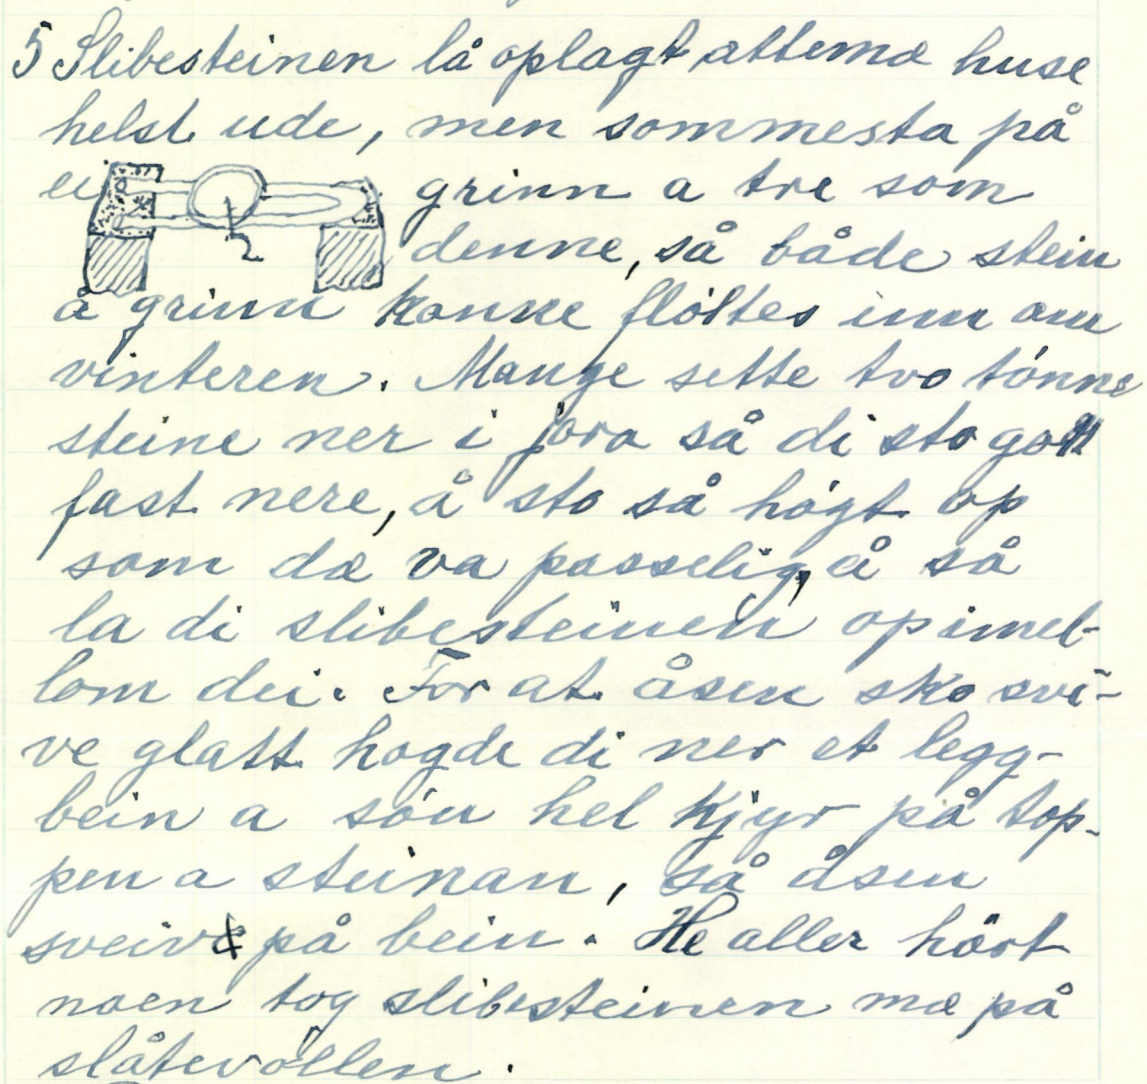 5 Slibesteinen lå oplagt attemæ huse
helst ude, men sommesta på
ei grinn a tre som
denne, så både stein
å grinn konne flöttes inn om
vinteren. Mange sette tvo tönne
steine ner i jora så di sto gott
fast nere, å sto så högt op
som dæ va passelig, å så
la di slibesteinen op imel-
lom dei. For at åsen sko svi-
ve glatt hogde di ner et legg-
bein a söu hel kjyr på top-
pen a steinan, så åsen
sveiv på bein. He aller hört
noen tog slibesteinen mæ på
slåtevöllen.